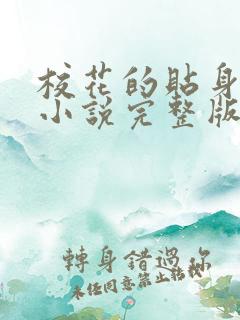 校花的貼身
小說完整版
轉身錯過你
未任同意禁止轉載